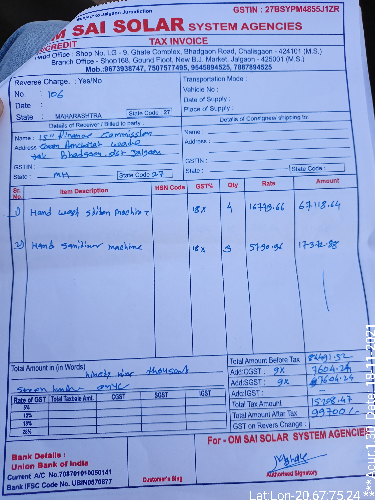 Subject to Jalgaon Jurisdiction
GSTIN : 27BSYPM4855J1ZR
OM SAI SOLAR SYSTEM AGENCIES
CREDIT
TAX INVOICE
Head Office - Shop No. LG - 9, Ghate Complex, Bhadgaon Road, Chalisgaon - 424101 (M.S.)
Branch Office - Shop168, Gound Floor, New B.J. Market, Jalgaon - 425001 (M.S.)
Mob.:9673938747, 7507577495, 9545894525, 7887894525
Reverse Charge. : Yes/No
No : 106
Date :
State : MAHARASHTRA State Code : 27
Transportation Mode :
Vehicle No :
Date of Supply :
Place of Supply :
Details of Receiver / Billed to party
Name : 15th Finance Commission
Address
tal Bhadgaon dist Jalgaon
GSTIN :
State : MH State Code 27
Details of Consignee shipping to
Name :
Address :
GSTIN :
State : State Code :
Sr. No. Item Description HSN Code GST% Qty Rate Amount
1) Hand wash machine 18% 4 16779.66 67118.64
2) Hand sanitizer machine 18% 3 5790.96 17372.88
Total Amount in (in Words)
ninety nine thousand
seven hundred only
Total Amount Before Tax 84491.52
Add:CGST : 9% 7604.24
Add:SGST : 9% 7604.24
Add:IGST :
Total Tax Amount
Total Amount After Tax 99700/-
GST on Revers Charge :
Rate of GST Total Taxable Amt. CGST SGST IGST
5%
12%
18%
28%
For - OM SAI SOLAR SYSTEM AGENCIES
Bank Details :
Union Bank of India
Current A/C No.766701010050141
Bank IFSC Code No. UBIN0576677
Customer's Sing
Authorised Signatory
Lat:Lon-20.67:75.24